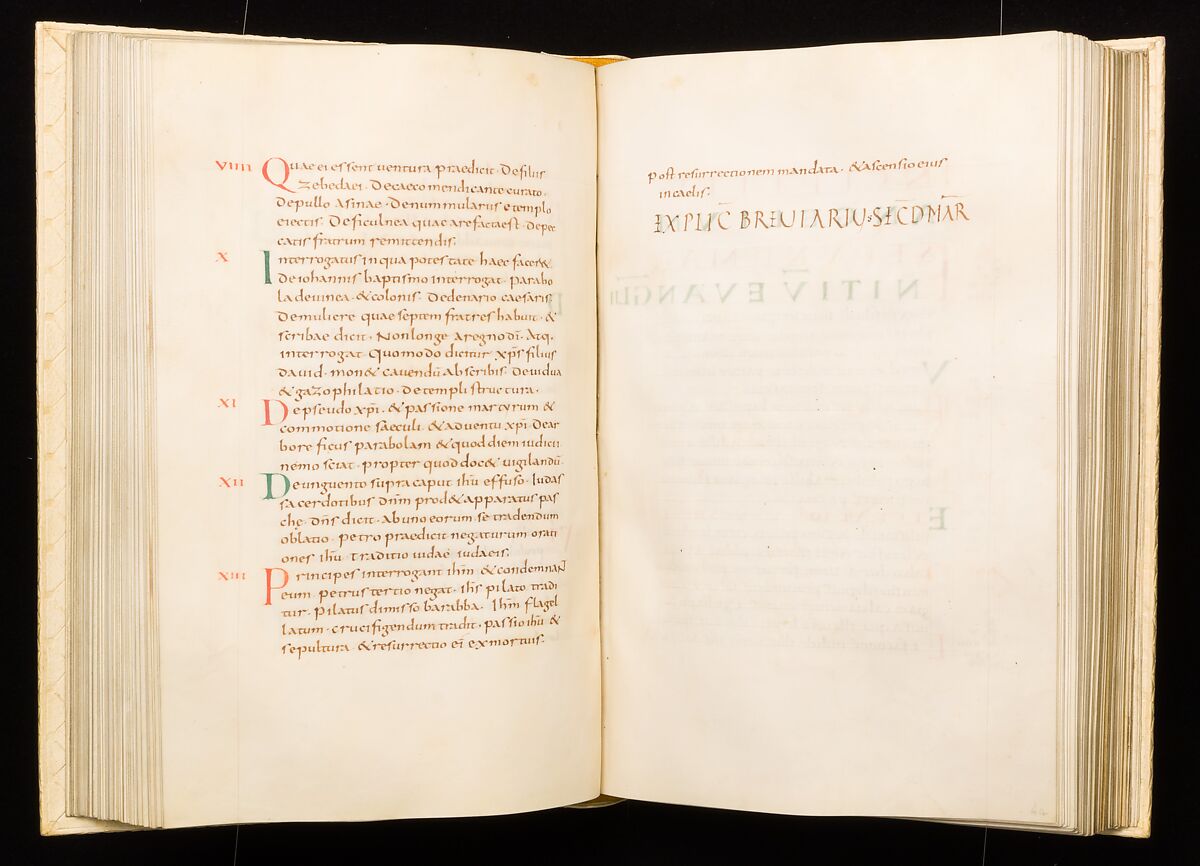 VIIII Quae ei essent ventura praedicit. De filiis
Zebedaei. De caeco mendicante curato.
De pullo asinae. De nummularius e templo
eiectis. De ficulnea quae arefacta est. De pec
catis fratrum remittendis.
X Interrogatus in qua potestate haec facer&
De iohannis baptismo interrogat. parabo
la de vinea. & colonis. De denario caesaris.
De muliere quae septem fratres habuit. &
scribae dicit. Non longe a regno dī. Atq.
interrogat. Quomodo dicitur xp̄s filius
david. mon& cavendū ab scribis. De vidua
& gazophilatio. De templi structura.
XI De pseudo xp̄i. & passione martyrum &
commotione saeculi. & adventu xp̄i. De ar
bore ficus parabolam & quod diem iudicii
nemo sciat. propter quod doc& vigilandū.
XII De unguento supra caput ihū effuso. Iudas
sacerdotibus dn̄m prod& apparatus pas
chę. dn̄s dicit. Ab uno eorum se tradendum
oblatio. petro praedicit negaturum orati
ones ihū. traditio iudae iudaeis.
XIII Principes interrogant ihm̄ & condemnaN
eum. petrus tertio negat. ihs̄ pilato tradi
tur. Pilatus dimisso barabba. Ihm̄ flagel
latum. crucifigendum tradit. passio ihū &
sepultura. & resurrectio eī ex mortuis.
post resurrectionem mandata. & ascensio eius
in caelis.
EXPLIC̄ BREUIARIUS SEC̄D MĀR